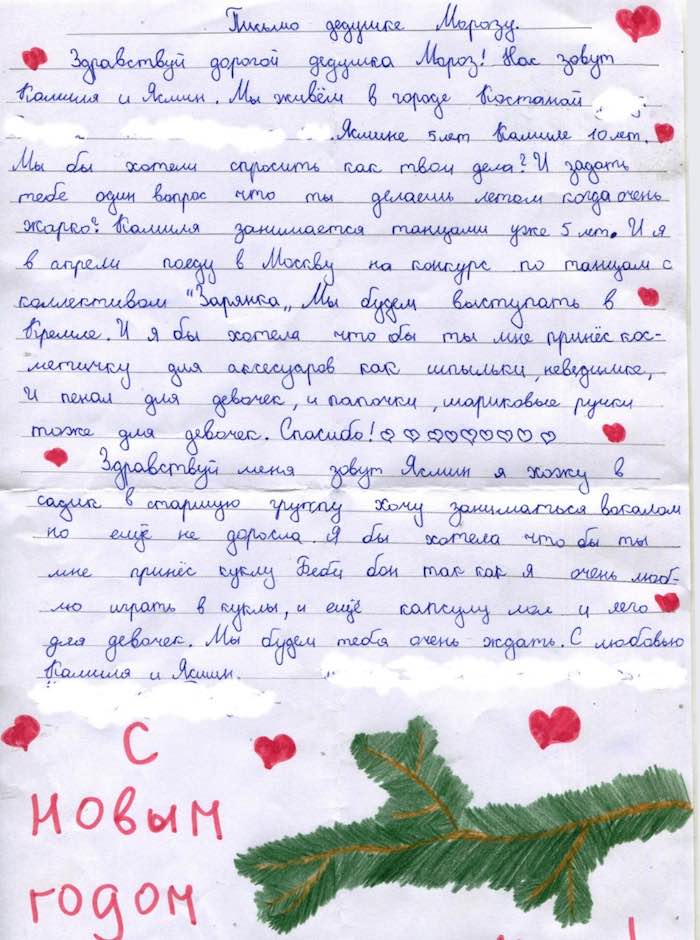 Письмо дедушке Морозу.
Здравствуй дорогой дедушка Мороз! Нас зовут
Камиля и Ясмин. Мы живём в городе Костанай
Ясмине 5 лет Камиле 10 лет.
Мы бы хотели спросить как твои дела? И задать
тебе один вопрос что ты делаешь летом когда очень
жарко? Камиля занимается танцами уже 5 лет. И я
в апрели поеду в Москву на конкурс по танцам с
коллективом "Зарянка„ Мы будем выступать в
Кремле. И я бы хотела что бы ты мне принёс кос-
метичку для аксесуаров как шпильки, неведимке,
И пенал для девочек, и папочки, шариковые ручки
тоже для девочек. Спасибо! ♡♡♡♡♡♡♡♡
Здравствуй меня зовут Ясмин я хожу в
садик в старшую группу хочу заниматься вокалом
но ещё не доросла. Я бы хотела что бы ты
мне принёс куклу Беби бон так как я очень люб-
лю играть в куклы, и ещё капсулу лол и лего
для девочек. Мы будем тебя очень ждать. С любовью
Камиля и Ясмин.
С
новым
годом